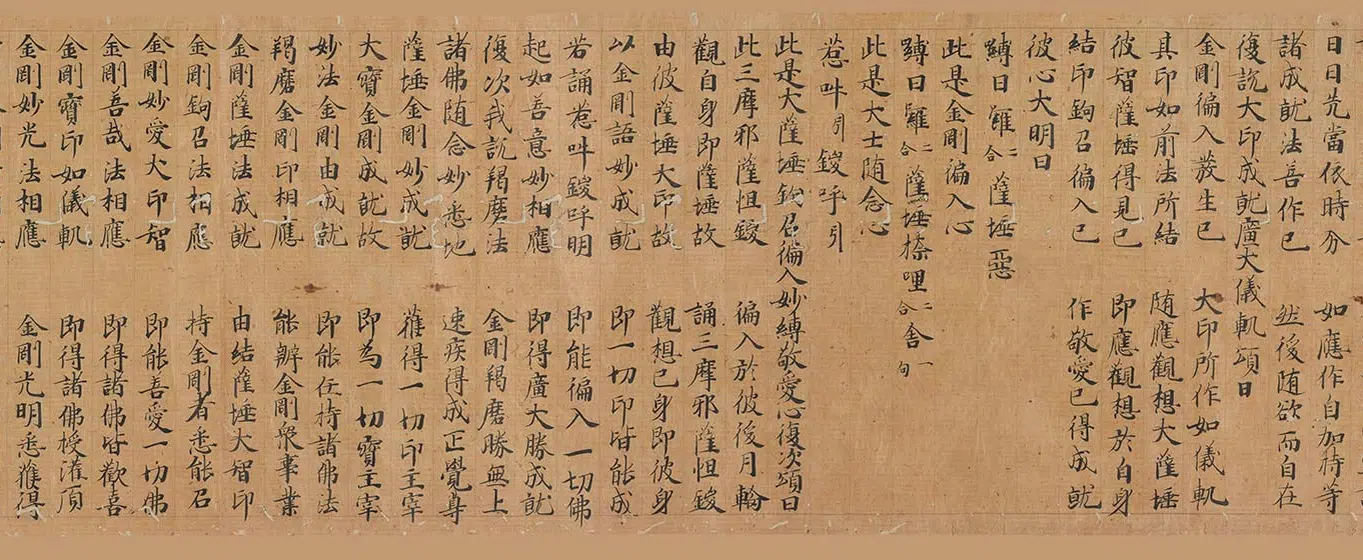 日日先當依時分　如應作自加持等
諸成就法善作已　然後随欲而自在
復說大印成就廣大儀軌頌曰
金剛徧入發生已　大印所作如儀軌
其印如前法所結　随應觀想大薩埵
彼智薩埵得見已　即應觀想於自身
結印鉤召徧入已　作敬愛已得成就
彼心大明曰
嚩日囉二合薩埵惡
此是金剛徧入心
嚩日囉二合薩埵捺哩二合舍一句
此是大士随念心
惹吽引鑁呼引
此是大薩埵鉤召徧入妙縛敬愛心復次頌曰
此三摩邪薩怛鑁　徧入於彼後月輪
觀自身即薩埵故　誦三摩邪薩怛鑁
由彼薩埵大印故　觀想已身即彼身
以金剛語妙成就　即一切印皆能成
若誦惹吽鑁呼明　即能徧入一切佛
起如善意妙相應　即得廣大勝成就
復次我說羯磨法　金剛羯磨勝無上
諸佛随念妙悉地　速疾得成正覺身
薩埵金剛妙成就　獲得一切印主宰
大寶金剛成就故　即為一切寶主宰
妙法金剛由成就　即能任持諸佛法
羯磨金剛印相應　能辦金剛衆事業
金剛薩埵法成就　由結薩埵大智印
金剛鉤召法相應　持金剛者悉能召
金剛妙愛大印智　即能善愛一切佛
金剛善哉法相應　即得諸佛皆歡喜
金剛寶印如儀軌　即得諸佛授灌頂
金剛妙光法相應　金剛光明悉獲得